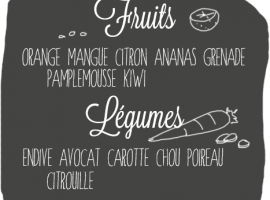 Fruits
ORANGE MANGUE CITRON ANANAS GRENADE
PAMPLEMOUSSE KIWI
Légumes
ENDIVE AVOCAT CAROTTE CHOU POIREAU
CITROUILLE